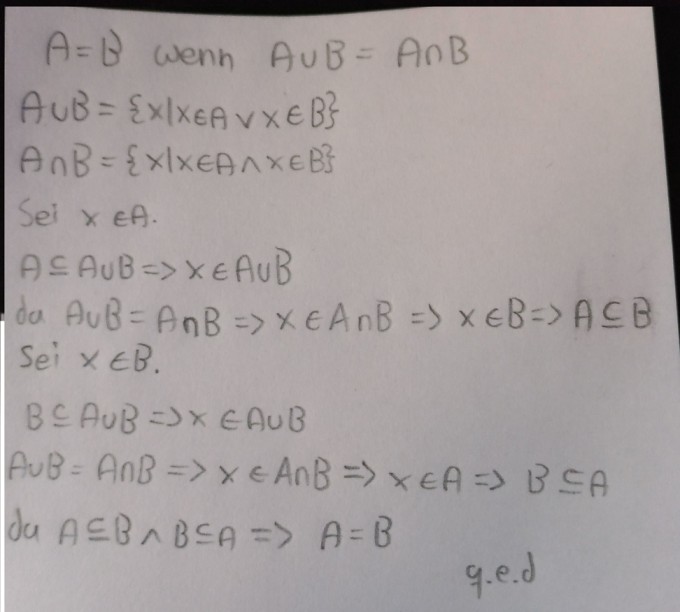 A=B wenn A∪B = A∩B
A∪B = {x|x∈A ∨ x∈B}
A∩B = {x|x∈A ∧ x∈B}
Sei x ∈A.
A⊆A∪B => x∈A∪B
da A∪B = A∩B => x∈A∩B => x∈B => A⊆B
Sei x ∈B.
B⊆A∪B => x∈A∪B
A∪B = A∩B => x∈A∩B => x∈A => B⊆A
da A⊆B ∧ B⊆A => A=B
q.e.d